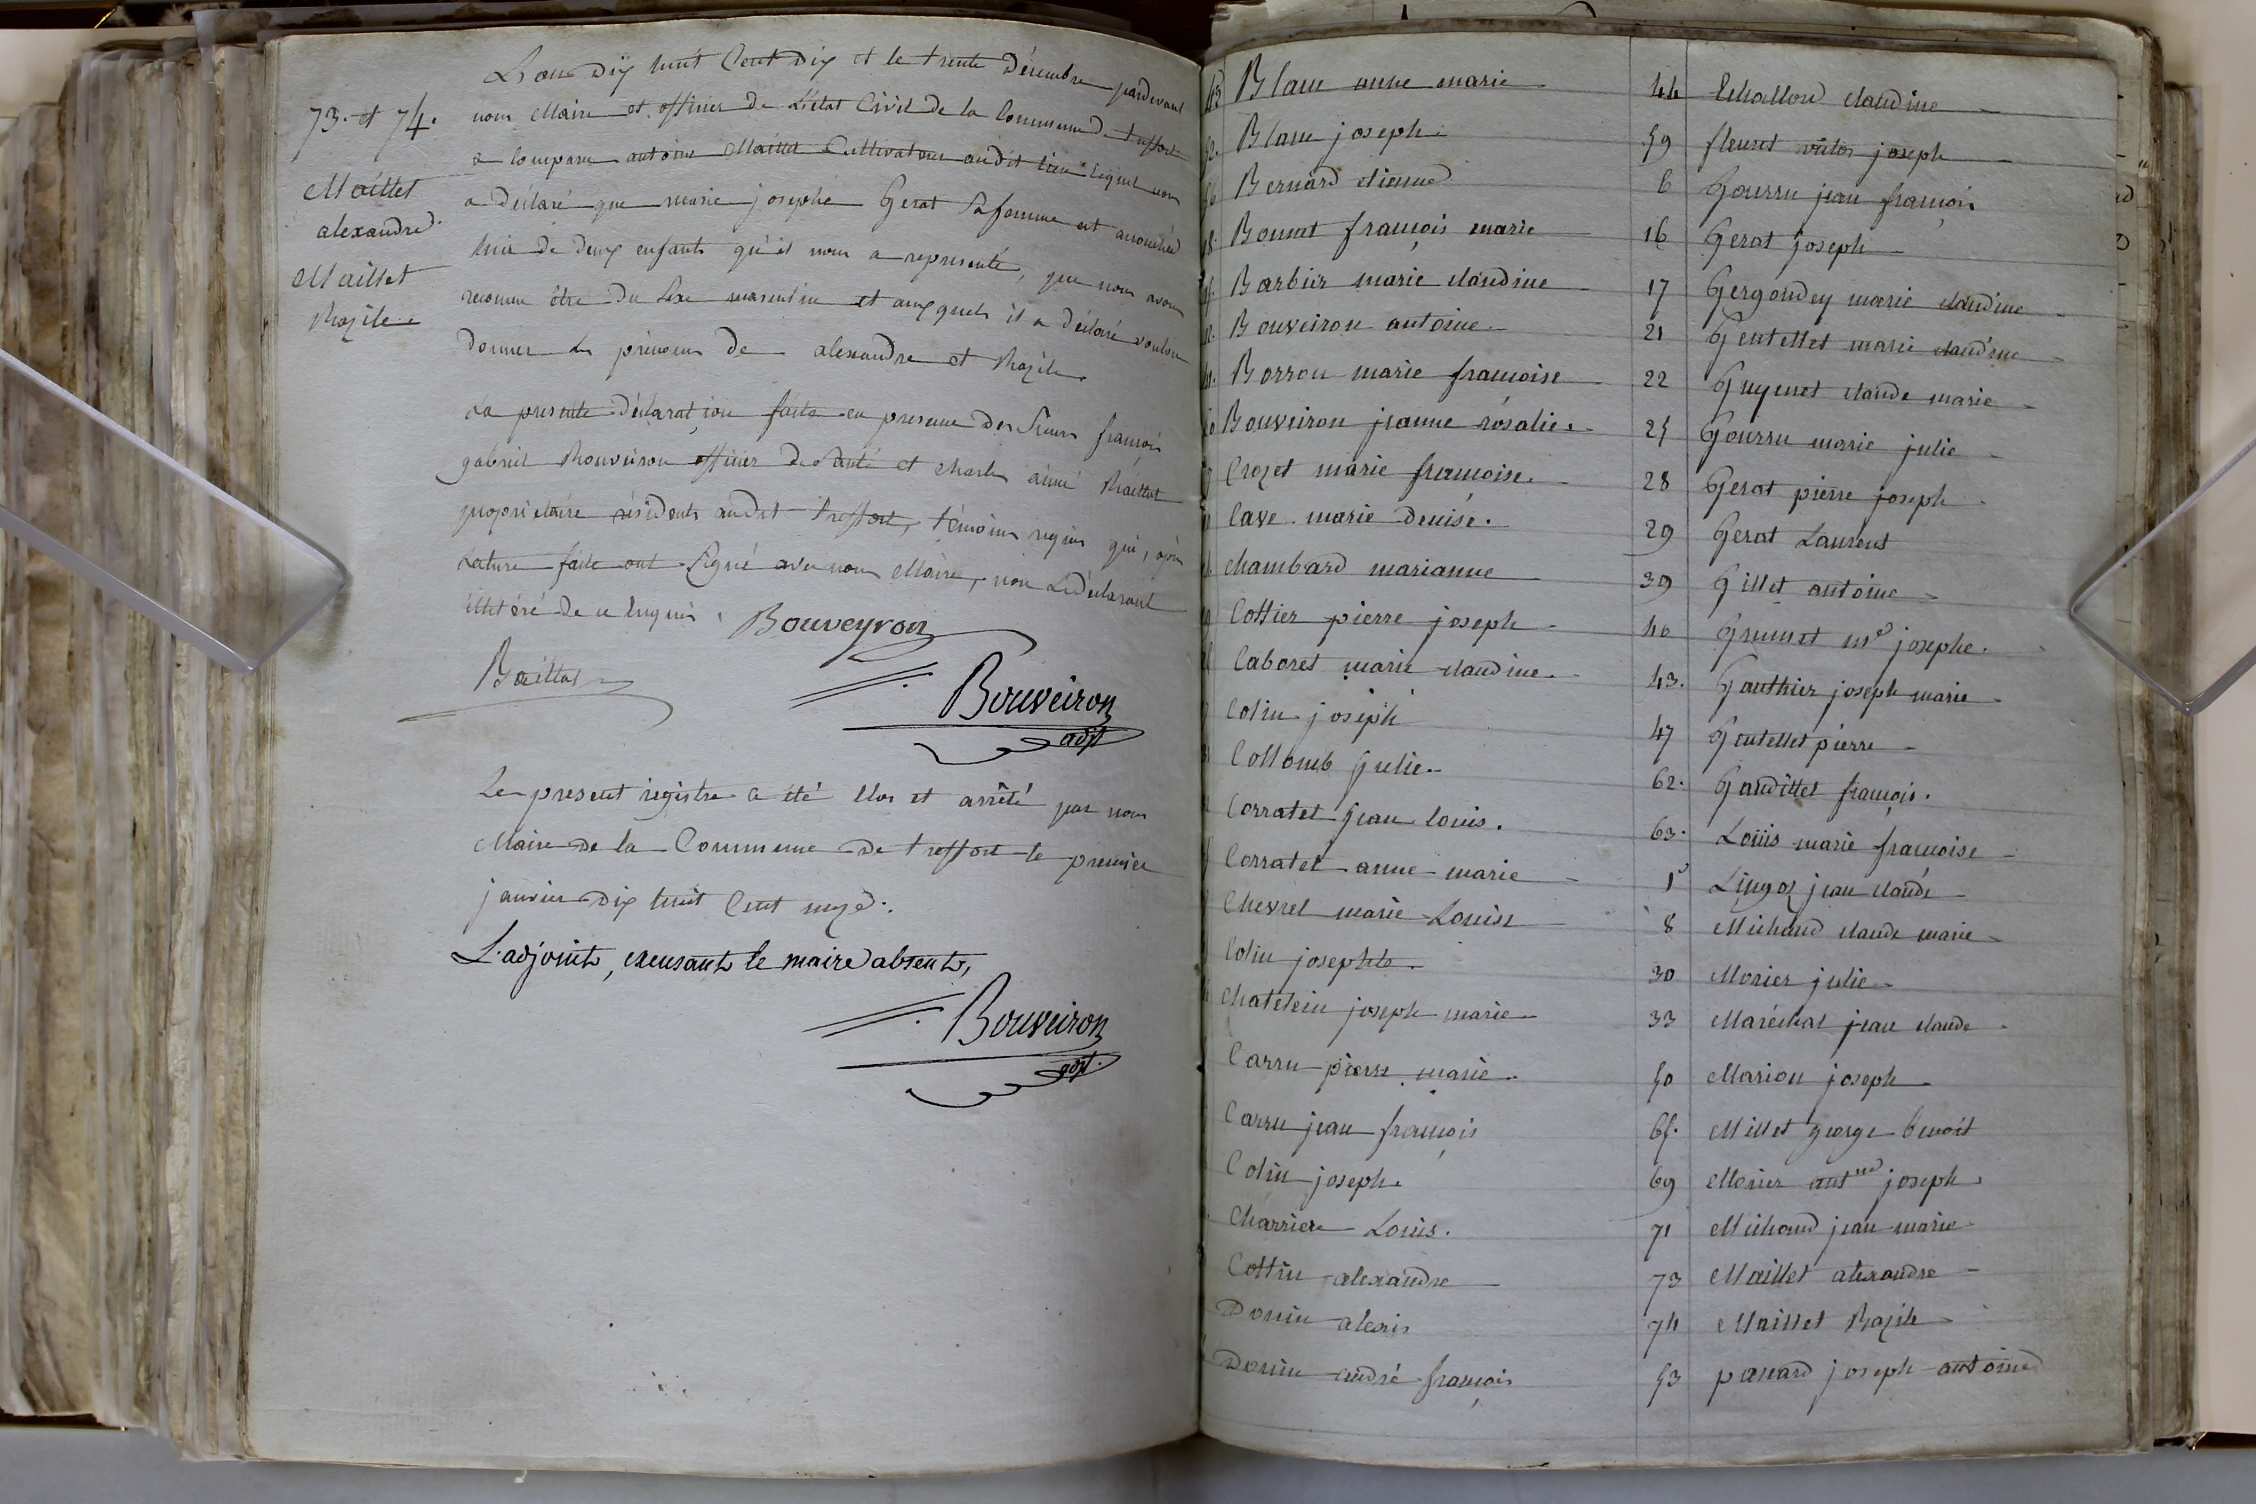 73. et 74.
Maillet
alexandre
Maillet
Bazile
L'an dix huit Cent dix et le trente Décembre pardevant
nous Maire et officier de L'état Civil de la Commune de treffort
a comparu antoine Maillet Cultivateur audit lieu lequel nous
a déclaré que marie josephe Gerat Sa femme est accouchée
hier de deux enfants qu'il nous a representé, que nous avons
reconnu être du Sexe masculin et auxquels il a déclaré vouloir
donner les prénoms de alexandre et Bazile
La presente déclaration faite en presence des Sieurs françois
gabriel Bouveiron officier de Santé et charle aimé Baillat
propriétaire résidents audit treffort, témoins requis qui, après
Lecture faite ont Signé avec nous Maire, non Le déclarant
illétéré de ce Enquis.
Bouveyron
Baillat
Bouveiron
adjt
Le present registre a été Clos et arrêté par nous
Maire de la Commune de treffort le premier
janvier dix huit Cent onze.
L'adjoint, excusant le maire absent,
Bouveiron
adjt.
Blanc anne marie
Blanc joseph
Bernard etienne
Bonnat françois marie
Barbier marie claudine
Bouveiron antoine
Borron marie francoise
Bouveiron jeanne rosalie
Crozet marie francoise.
Cave marie denise.
chambard marianne
Cottier pierre joseph
Caboret marie claudine
Colin joseph
Collomb Julie
Corratet Jean louis.
Corratet anne marie
Chevrel marie Louise
Colin josephte
Chatelein joseph marie
Carru pierre marie
Carru jean françois
Colin joseph
Charriere Louis.
Cottin alexandre
Donin alexis
Donin andré françois
44 Echallond claudine
59 fleuret victor joseph
6 Gourru jean françois
16 Gerat joseph
17 Gergondey marie claudine
21 Gentellet marie claudine
22 Guyenet claude marie
25 Gourru marie julie
28 Gerat pierre joseph
29 Gerat Laurent
39 Gillet antoine
40 Grumet me josephe.
43. Gauthier joseph marie
47 Gentellet pierre
62. Gandillet françois.
63. Loüis marie francoise
15 Lingoz jean claude
8 Michaud claude marie
30 Morier julie
33 Maréchal jean claude
50 Marion joseph
65. Millet george benoit
69 Morier antne joseph
71 Michaud jean marie
73 Maillet alexandre
74 Maillet Bazile
53 panard joseph antoine